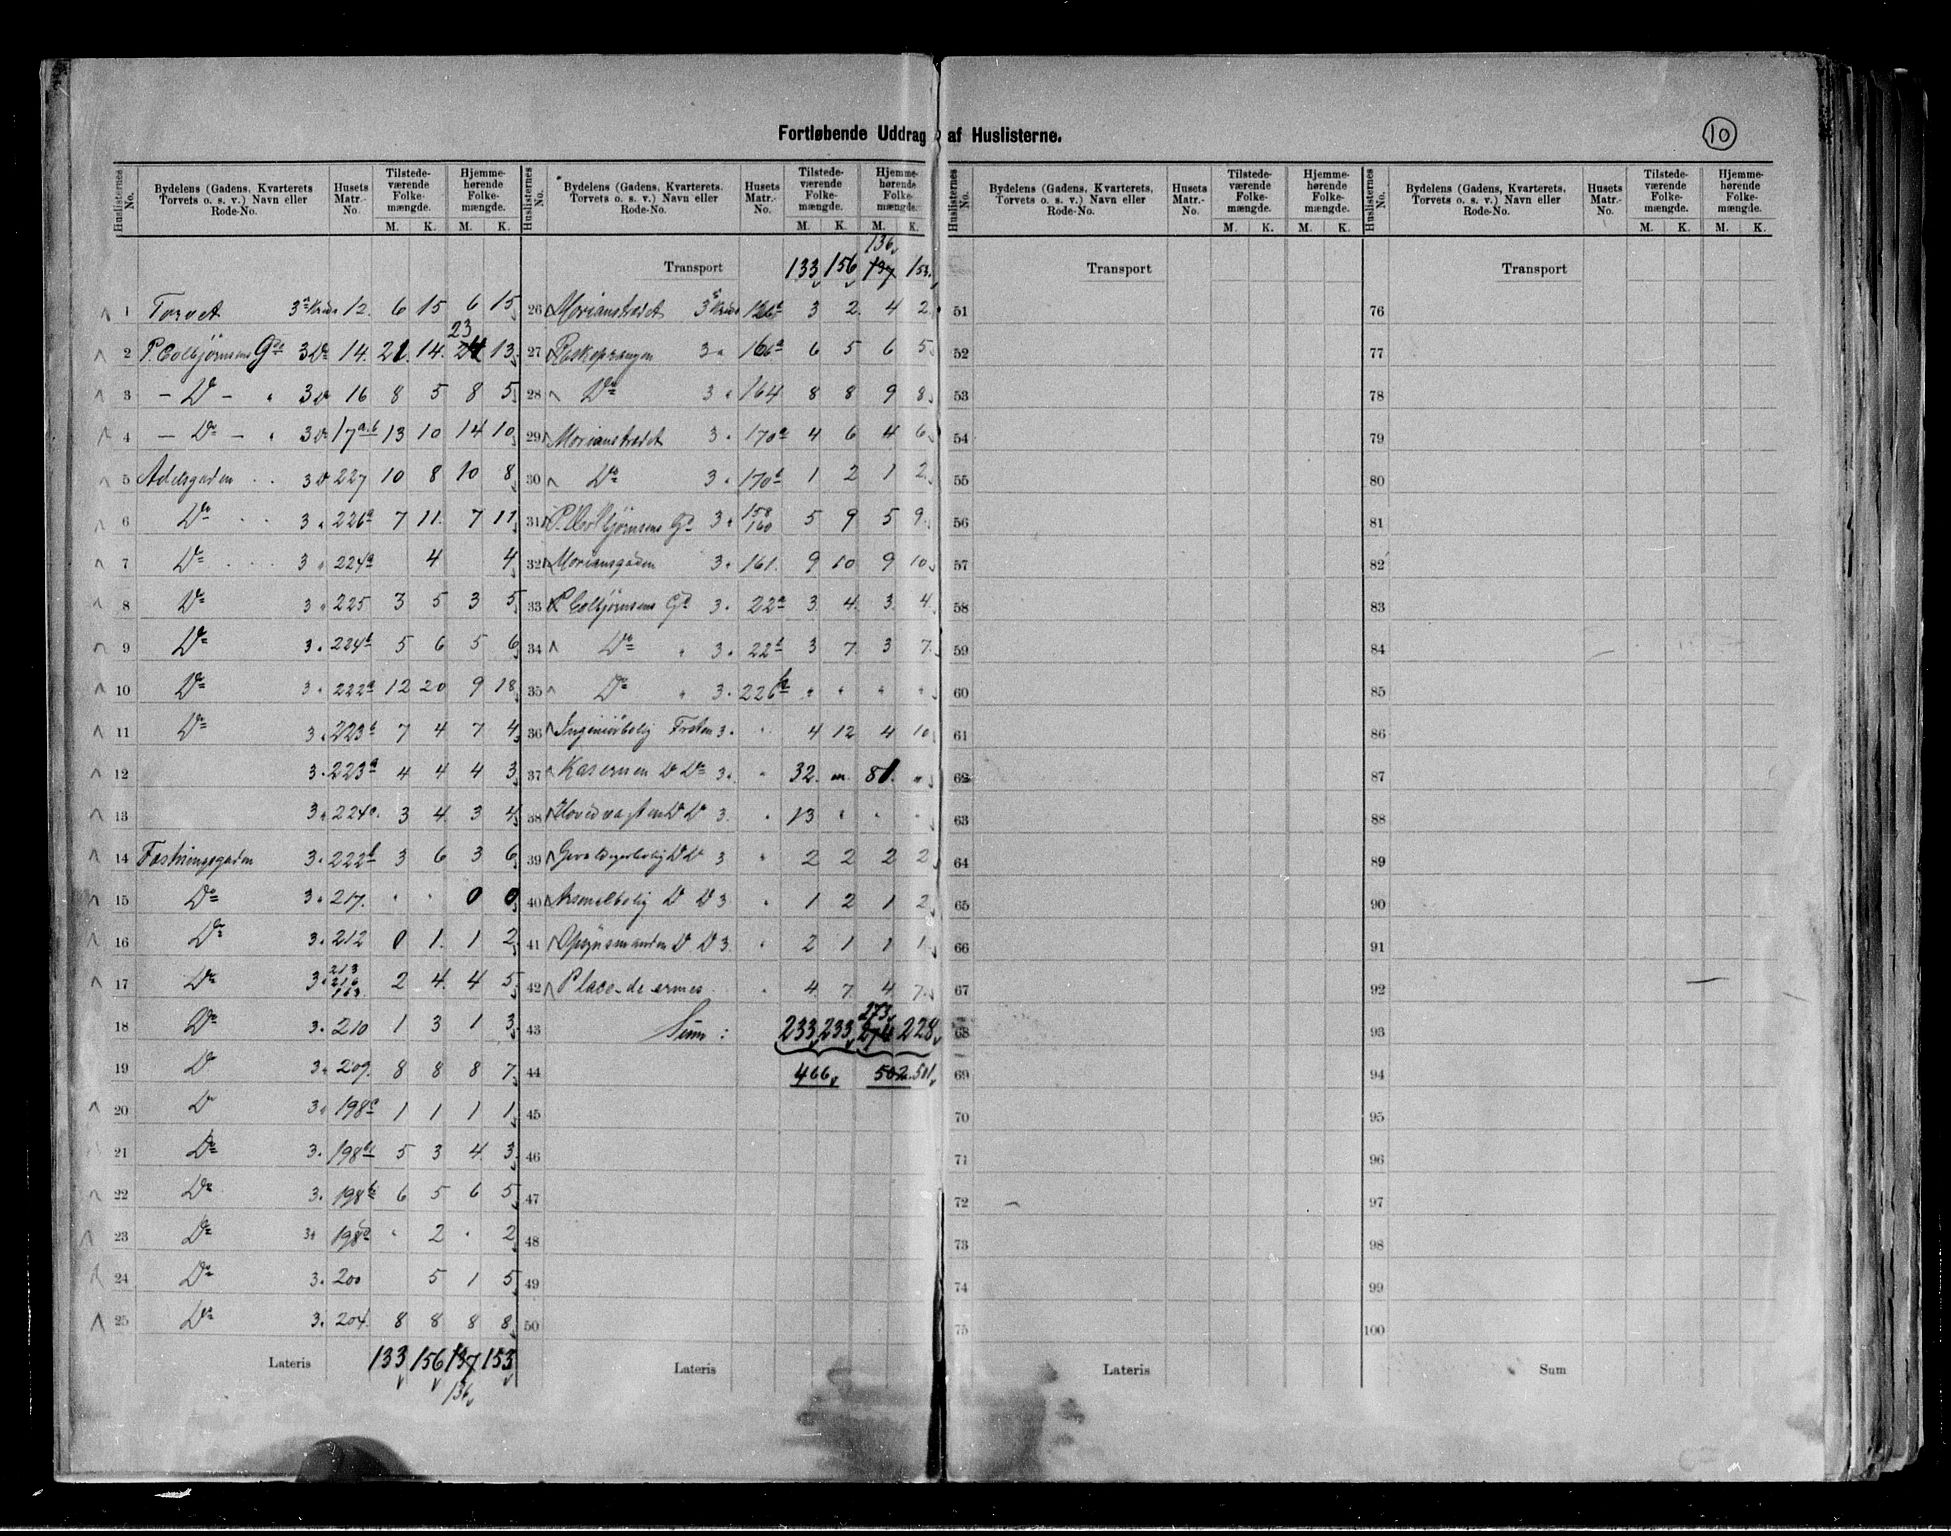 Fortløbende Uddrag af Huslisterne.
10
Huslisternes No. Bydelens (Gadens, Kvarterets Torvets o. s. v.) Navn eller Rode-No. Husets Matr.-No. Tilstede-værende Folke-mængde. Hjemme-hørende Folke-mængde.
M. K. M. K.
1 Torvet 12. 6 15 6 15
2 P. Colbjørnsens Gde 3 Do 14. 21. 14. 24 23 13
3 — Do — " 3 Do 16 8 5 8 5
4 — Do — " 3 Do 17a.b 13 10 14 10
5 Adelsgaden 3 Do 227 10 8 10 8
6 Do 3 " 226a 7 11. 7 11
7 Do 3 " 224a 4 4
8 Do 3 " 225 3 5 3 5
9 Do 3 " 224b 5 6 5 6
10 Do 3 " 222a 12 20 9 18
11 Do 3 " 223b 7 4 7 4
12 3 " 223a 4 4 4 3
13 3 " 224 3 4 3 4
14 Fæstningsgaden 3 " 222b 3 6 3 6
15 Do 3 " 217. " " 0 0
16 Do 3 " 212 0 1 1 2
17 Do 3 " 213 216 163 2 4 4 5
18 Do 3 " 210 1 3 1 3
19 Do 3 " 209. 8 8 8 7
20 Do 3 " 198c 1 1 1 1
21 Do 3 " 198 5 3 4 3
22 Do 3 " 198b 6 5 6 5
23 Do 3 " 198 " 2 " 2
24 Do 3 " 200 5 1 5
25 Do 3 " 204. 8 8 8 8
Lateris 133 156 137 153
136
Huslisternes No. Bydelens (Gadens, Kvarterets. Torvets o. s. v.) Navn eller Rode-No. Husets Matr.-No. Tilstede-værende Folke-mængde. Hjemme-hørende Folke-mængde.
M. K. M. K.
136
Transport 133 156 137 153
26 Morianstrædet 3 2 4 2
27 3 " 166a 6 5 6 5
28 Do 3 " 164 8 8 9 8
29 Morianstrædet 3 " 170a 4 6 4 6
30 Do 3 " 170b 1 2 1 2
31 P. Colbjørnsens Gd 3 " 158 160 5 9 5 9
32 Moriansgaden 3 " 161. 9 10 9 10
33 P. Colbjørnsens Gd 3 " 22a 3 4 3 4
34 Do " 3 " 22b 3 7 3 7
35 Do " 3 " 226 " " " "
36 Ingeniørbolig Fretten 3 " " 4 12 4 10
37 Kasernen D Do 3 " " 32 " 81. "
38 Hovedvagten D Do 3. " 13 " " "
39 D Do 3 " 2 2 2 2
40 Arsenalbolig D D 3 " 1 2 1 2
41 Opsynsmanden D D 3. " 2 1 1 1
42 Place de ermes. " 4 7 4 7
273
43 Sum : 233 233 274 228
44 466 502 501
45
46
47
48
49
50
Lateris
Huslisternes No. Bydelens (Gadens, Kvarterets, Torvets o. s. v.) Navn eller Rode-No. Husets Matr.-No. Tilstede-værende Folke-mængde. Hjemme-hørende Folke-mængde.
M. K. M. K.
Transport
51
52
53
54
55
56
57
58
59
60
61
62
63
64
65
66
67
68
69
70
71
72
73
74
75
Lateris
Huslisternes No. Bydelens (Gadens, Kvarterets, Torvets o. s. v.) Navn eller Rode-No. Husets Matr.-No. Tilstede-værende Folke-mængde. Hjemme-hørende Folke-mængde.
M. K. M. K.
Transport
76
77
78
79
80
81
82
83
84
85
86
87
88
89
90
91
92
93
94
95
96
97
98
99
100
Sum